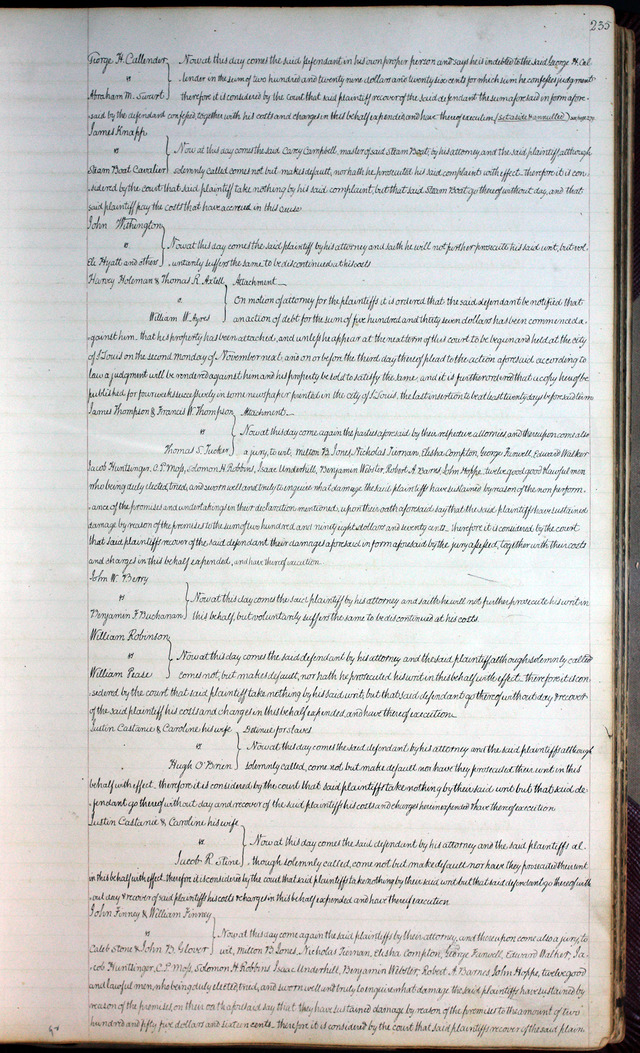 235
George H. Callender } Now at this day comes the said defendant in his own proper person and says he is indebted to the said George H. Cal-
vs lender in the sum of two hundred and twenty nine dollars and twenty six cents for which sum he confesses judgment
Abraham M. Swart therefore it is considered by the court that said plaintiff recover of the said defendant the sum aforesaid in form afore-
said by the defendant confessed, together with his costs and charges in this behalf expended, and have thereof execution (set aside & annulled)
James Knapp
vs } Now at this day comes the said Cary Campbell, master of said Steam Boat, by his attorney, and the said plaintiff although
Steam Boat Cavalier solemnly called comes not but makes default, nor hath he prosecuted his said complaint with effect. therefore it is con-
sidered by the court that said plaintiff take nothing by his said complaint, but that said Steam Boat go thereof without day, and that
said plaintiff pay the costs that have accrued in this cause
John Withington
vs } Now at this day comes the said plaintiff by his attorney and saith he will not further prosecute his said writ, but vol-
Eli Hyatt and others untarily suffers the same to be discontinued at his costs
Harvey Holeman & Thomas R. Axtell } Attachment
vs On motion of attorney for the plaintiffs it is ordered that the said defendant be notified that
William W. Ayres an action of debt for the sum of five hundred and thirty seven dollars has been commenced a-
gainst him. that his property has been attached, and unless he appear at the next term of this court to be begun and held at the city
of St Louis on the second monday of November next. and on or before the third day thereof plead to the action aforesaid according to
law a judgment will be rendered against him and his property be sold to satisfy the same, and it is further ordered that a copy hereof be
published for four weeks successively in some newspaper printed in the city of St. Louis, the last insertion to be at least twenty days before said term
James Thompson & Francis W. Thompson } Attachment
vs Now at this day come again the parties aforesaid by their respective attornies and thereupon comes also
Thomas S. Tucker a jury, to wit, Milton B Jones, Nicholas Tiernan, Elisha Compton, George Funwell, Edward Walker
Jacob Huntlinger, C. P. Moss, Solomon H Robbins, Isaac Underhill, Benjamin Webster, Robert A. Barnes John Hoppe, twelve good good & lawful men
who being duly elected, tried, and sworn well and truly to enquire what damage the said plaintiffs have sustained by reason of the non perform-
ance of the promises and undertakings in their declaration mentioned, upon their oath aforesaid say that the said plaintiffs have sustained
damage by reason of the premises to the sum of two hundred and ninety eight dollars and seventy cents. therefore it is considered by the court
that said plaintiffs recover of the said defendant their damages aforesaid in form aforesaid by the jury assessed, together with their costs
and charges in this behalf expended, and have thereof execution
John W. Berry
vs } Now at this day comes the said plaintiff by his attorney and saith he will not further prosecute his writ in
Benjamin F. Buchanan this behalf, but voluntarily suffers the same to be discontinued at his costs.
William Robinson
vs } Now at this day comes the said defendant by his attorney and the said plaintiff although solemnly called
William Pease comes not, but makes default, nor hath he prosecuted his writ in this behalf with effect. therefore it is con-
sidered by the court that said plaintiff take nothing by his said writ, but that said defendant go thereof without day & recover
of the said plaintiff his costs and charges in this behalf expended, and have thereof execution.
Justin Castanie & Caroline his wife } Detinue for slaves
vs Now at this day comes the said defendant, by his attorney and the said plaintiffs although
Hugh O'Brien solemnly called, come not but make default nor have they prosecuted their writ in this
behalf with effect. therefore it is considered by the court that said plaintiffs take nothing by their said writ but that said de-
fendant go thereof without day and recover of the said plaintiffs his costs and charges herein expended & have thereof execution
Justin Castanie & Caroline his wife
vs } Now at this day comes the said defendant by his attorney and the said plaintiffs al-
Jacob R. Stine though solemnly called, come not but make default nor have they prosecuted their writ
in this behalf with effect. therefore it is considered by the court that said plaintiffs take nothing by their said writ but that said defendant go thereof with-
out day & recover of said plaintiffs his costs & charges in this behalf expended and have thereof execution
John Finney & William Finney
vs } Now at this day come again the said plaintiffs by their attorney, and thereupon come also a jury, to
Caleb Stone & John B. Glover wit, Milton B. Jones, Nicholas Tiernan, Elisha Compton, George Funwell, Edward Walker, Ja-
cob Huntlinger, C. P. Moss, Solomon H Robbins, Isaac Underhill, Benjamin Webster, Robert A. Barnes John Hoppe, twelve good
and lawful men, who being duly elected, tried, and sworn well and truly to enquire what damage the said plaintiffs have sustained by
reason of the premises, on their oath aforesaid say that they have sustained damage by reason of the premises to the amount of two
hundred and fifty five dollars and sixteen cents. therefore it is considered by the court that said plaintiffs recover of the said plain